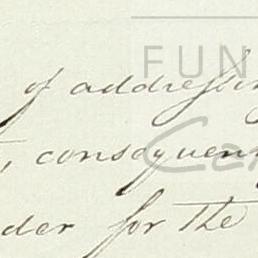 FUN
of addressin
, consequen
Ca
der for the